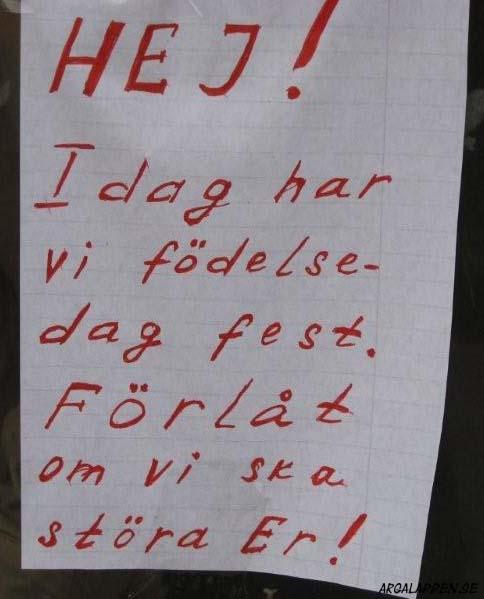 HEJ!
Idag har
vi födelse-
dag fest.
Förlåt
om vi ska
störa Er!
ARGALAPPEN.SE